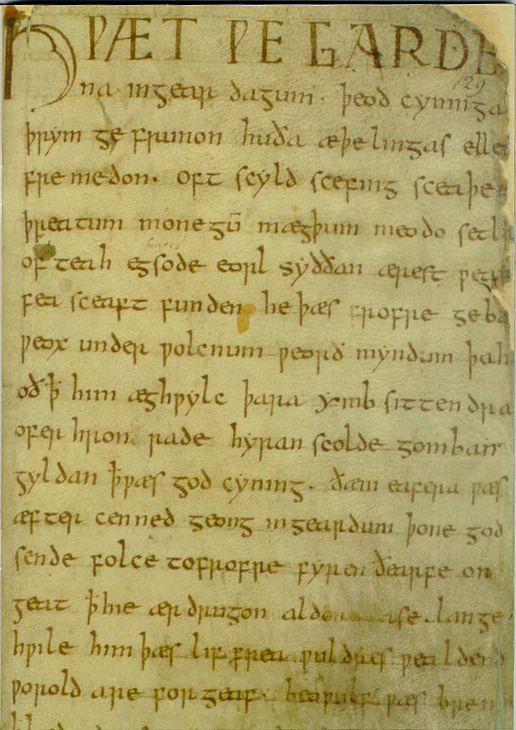 HǷÆT ǷE GARDE
na ingear dagum · þeod cyninga
þrym ge frunon huða æþelingas elle
fremedon · oft scyld scefing sceaþe
þreatum monegū mægþum meodo setla
of teah egsode eorl syððan ærest ƿear
fea sceaft funden he þæs frofre geba
ƿeox under ƿolcnum ƿeorð myndum þah
oð ꝥ him æghƿylc þara ymb sittendra
ofer hron rade hyran scolde gomban
gyldan ꝥ ƿæs god cyning · ðæm eafera ƿæs
æfter cenned geong ingeardum þone god
sende folce tofrofre fyren ðearfe on
geat ꝥ hie ær drugon aldor ase · lange
hƿile him þæs lif frea ƿuldres ƿealdend
ƿorold are for geaf · beoƿulf ƿæs breme